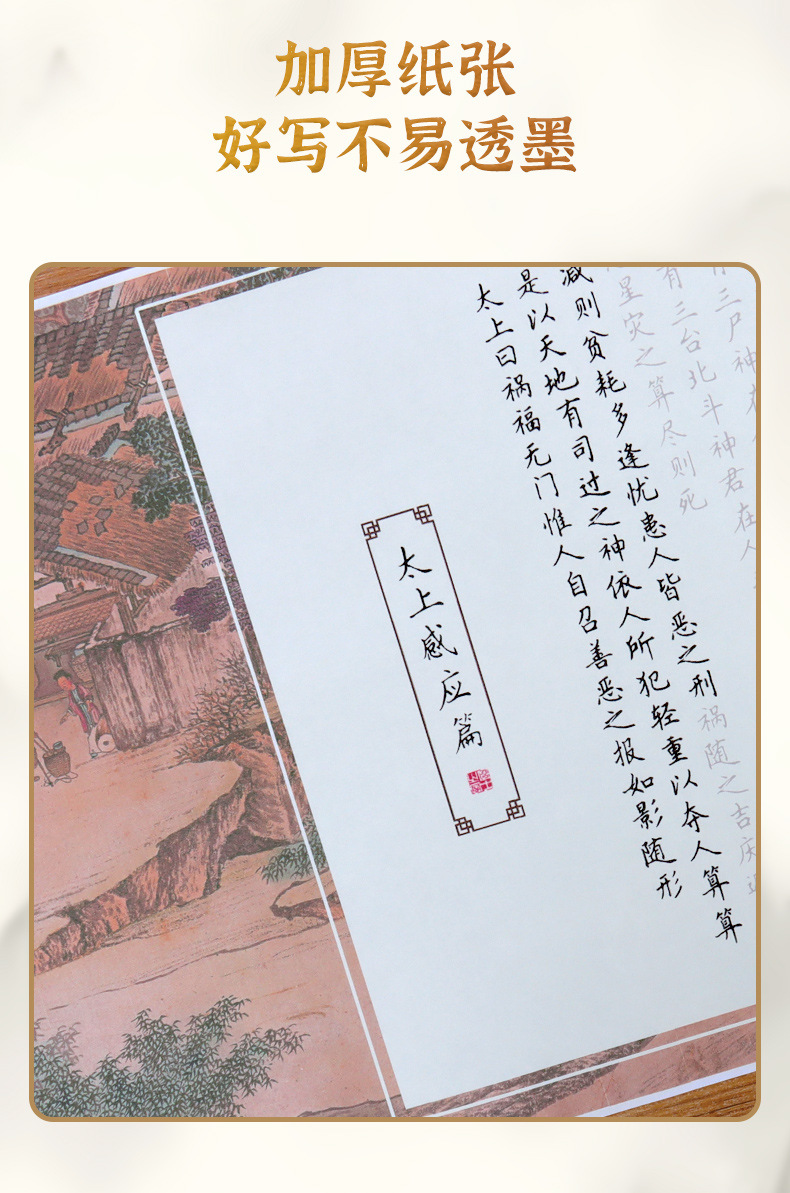 加厚纸张
好写不易透墨
太上感应篇
太上曰祸福无门惟人自召善恶之报如影随形
是以天地有司过之神依人所犯轻重以夺人算算
减则贫耗多逢忧患人皆恶之刑祸随之吉庆避
星灾之算尽则死
有三台北斗神君在人
三尸神在